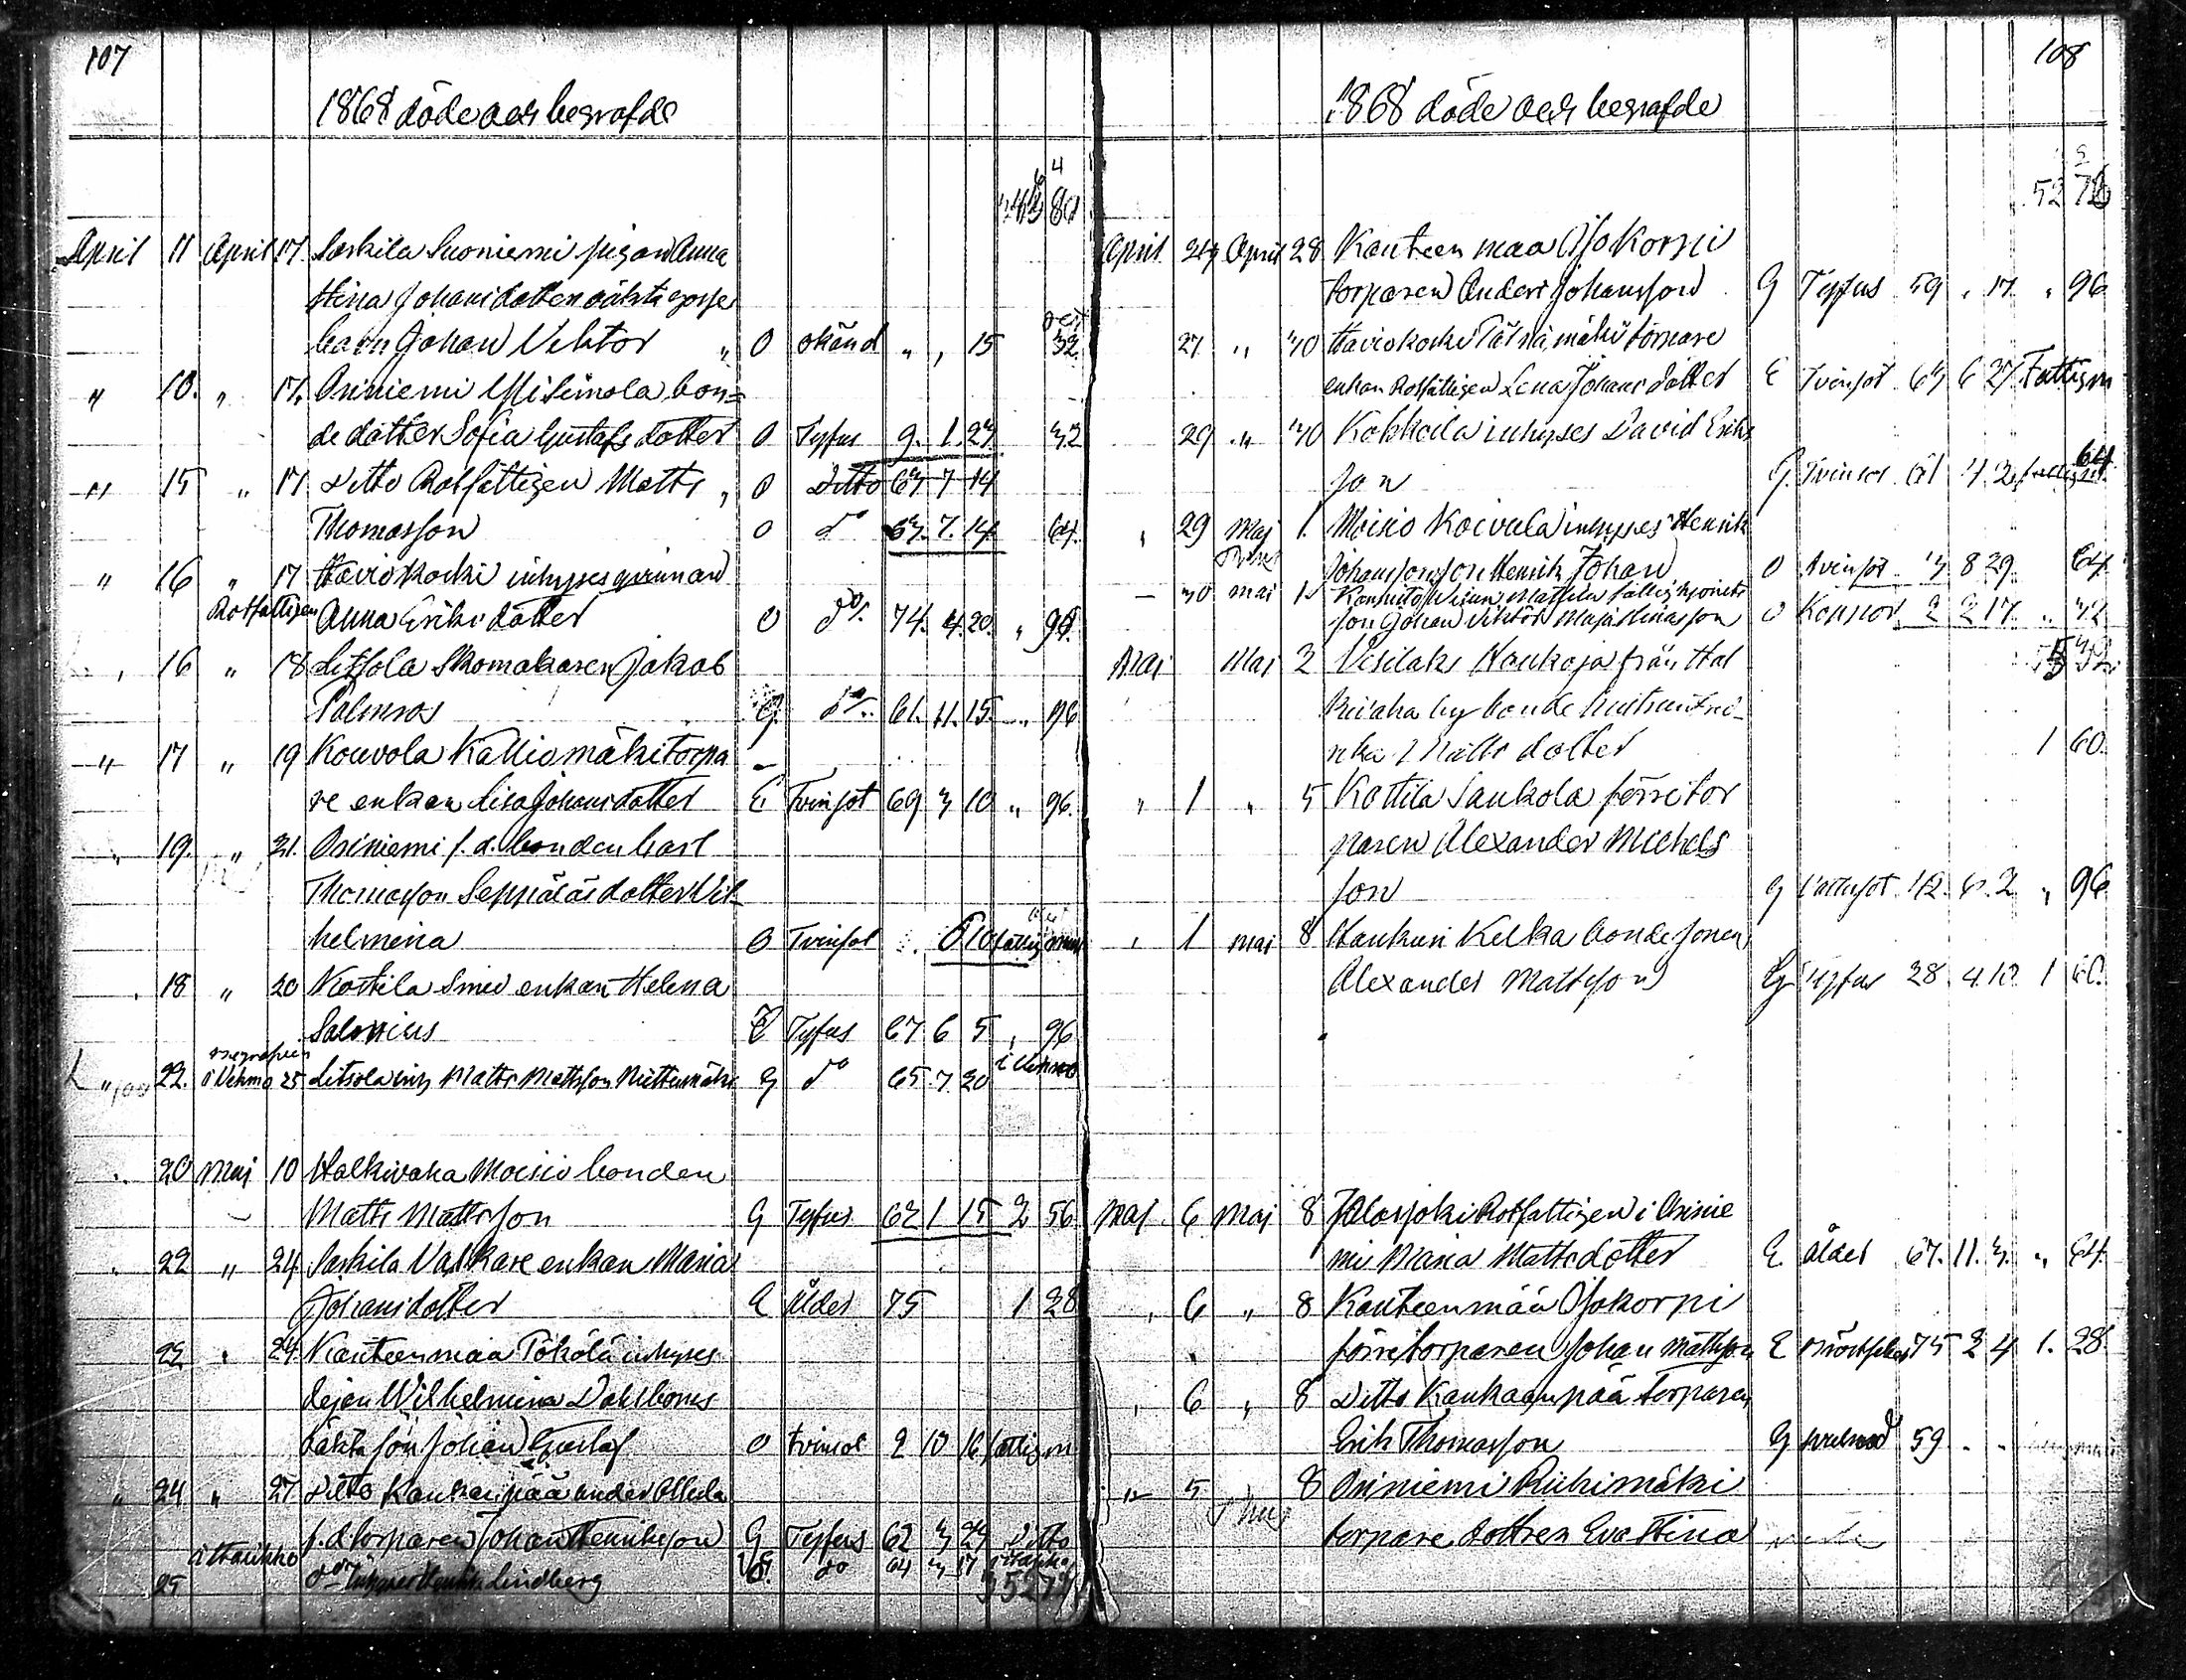 107
1868 döde och begrafde
4
6
43 80
April 11 April 17. Saskila Suoniemi pigan Anna
Stina Johansdotters oäkta gosse
barn Johan Viktor " O okänd " , 15 32
" 10. " 17. Osiniemi Yli Simola bon=
dedotter Sofia Gustafs dotter O Tyfus 9. 1. 23. 32
" 15 " 17 Ditto Rotfattigen Matts , O Ditto 63 7 14
Thomasson O do 63. 7. 14 64.
" 16 " 17 Haviokoski inhyses qvinnan
Rotfattigen Anna Eriks dotter O do. 74. 4. 20. " 96.
, 16 " 18 Litsola Skomakaren Jakob
Palmros G. do.. 61. 11. 15. .. 96
" 17 " 19 Kouvola Kalliomäki torpa
re enkan Lisa Johansdotter E. Tvinsot 69 3 10 " 96.
" 19. " 21. Osiniemi f. d. bonden Carl
Thomasson Seppäläs dotter Vil-
helmina O Tvinsot 6 10 fattig
. 18 " 20 Kostila Smed enkan Helena
Salonius E Tyfus 67 6 5 , 96
begrafven
" 22. i Vehmo 25 Litsola inh Matts Mattsson Niittumäki G do 65 7 20
. 20 Maj 10 Halkivaha Moisio bonden
Matts Mattsson G Tyfus 62 1 15 2 56
. 22 " 24 Saskila Vaskare enkan Maria
Johansdotter E Ålder 75 1 28
22 " 24. Kanteenmaa Pöhölä inhyses
dejan Wilhelmina Dahlboms
oäkta son Johan Gustaf O tvinsot 2 10 16 fattig m
" 24 " 27 Ditto Kankaanpää under Ollila
f. d. torparen Johan Henriksson G Tyfus 62 3 23 Ditto
25 i Halikko do Inhyses Henrik Lindberg G. do 64 3 17
108
1868 döde och begrafde
52 76
April 24 April 28 Kanteen maa Ojakorpi
torparen Anders Johansson . G Tyfus 59 . 17 . 96
27 " 30 Haviokoski Pätsämäki torpare
enkan Rotfattigen Lena Johans dotter E Tvinsot 63 6 27 Fattig m
29 " 30 Kokkoila inhyses David Eriks
son G. Tvinsot 61 4 2 64
, 29 Maj 1. Moisio Koivula inhyses Henrik
Johanssons son Henrik Johan O Tvinsot 3 8 29. 64.
- 30 Maj 1.
son Johan Viktor Maja Stinas son O Koppor 2 2 17. .. 32
Maj Maj 2 Vesilaks Haukoja från Hal
kivaha by bonde
Matts dotter 1 60.
" 1 " 5 Kottila Saukola förre tor
paren Alexander Michels
son G 42. 6. 2 " 96
, 1 Maj 8 Haukuri Kelka bonde sonen
Alexander Mattsson G Tyfus 28. 4. 10. 1 60.
Maj 6 Maj 8 Jalasjoki Rotfattigen i Osinie
mi Maria Mattsdotter E. ålder 67. 11. 3. " 64.
, 6 " 8 Kanteenmaa Ojakorpi
förre torparen Johan Mattsson E 75 2 4 1. 28.
, 6 , 8 Ditto Kankaanpää torparen
Erik Thomasson G 59 . .
" 5 8 Osiniemi Riihimäki
torpare dottren Eva Stina